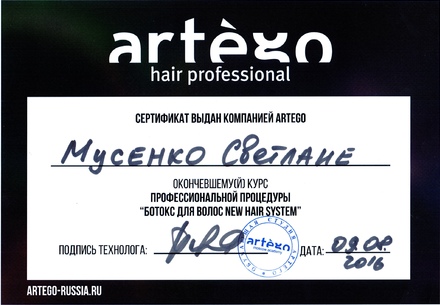 artègo
hair professional
СЕРТИФИКАТ ВЫДАН КОМПАНИЕЙ ARTEGO
Мусенко Светлане
ОКОНЧЕВШЕМУ(Й) КУРС
ПРОФЕССИОНАЛЬНОЙ ПРОЦЕДУРЫ
"БОТОКС ДЛЯ ВОЛОС NEW HAIR SYSTEM"
ПОДПИСЬ ТЕХНОЛОГА:
artègo
ДАТА: 09.08.
2016
ARTEGO-RUSSIA.RU